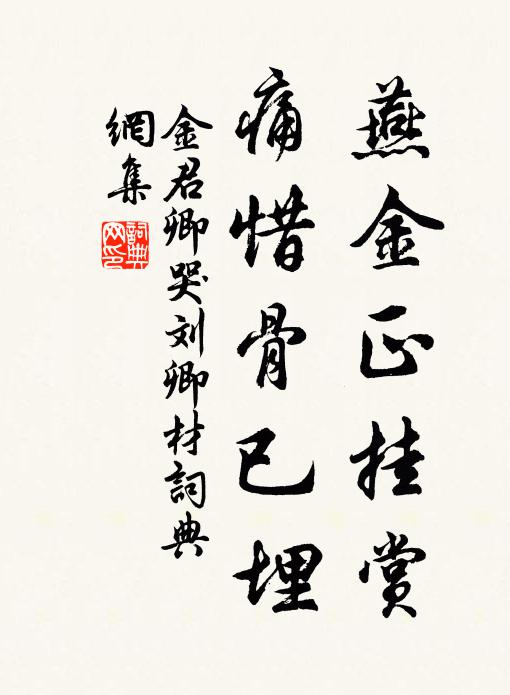 燕金正挂赏
痛惜骨已埋
金君卿哭刘卿材詞典
網集
詞典
网印